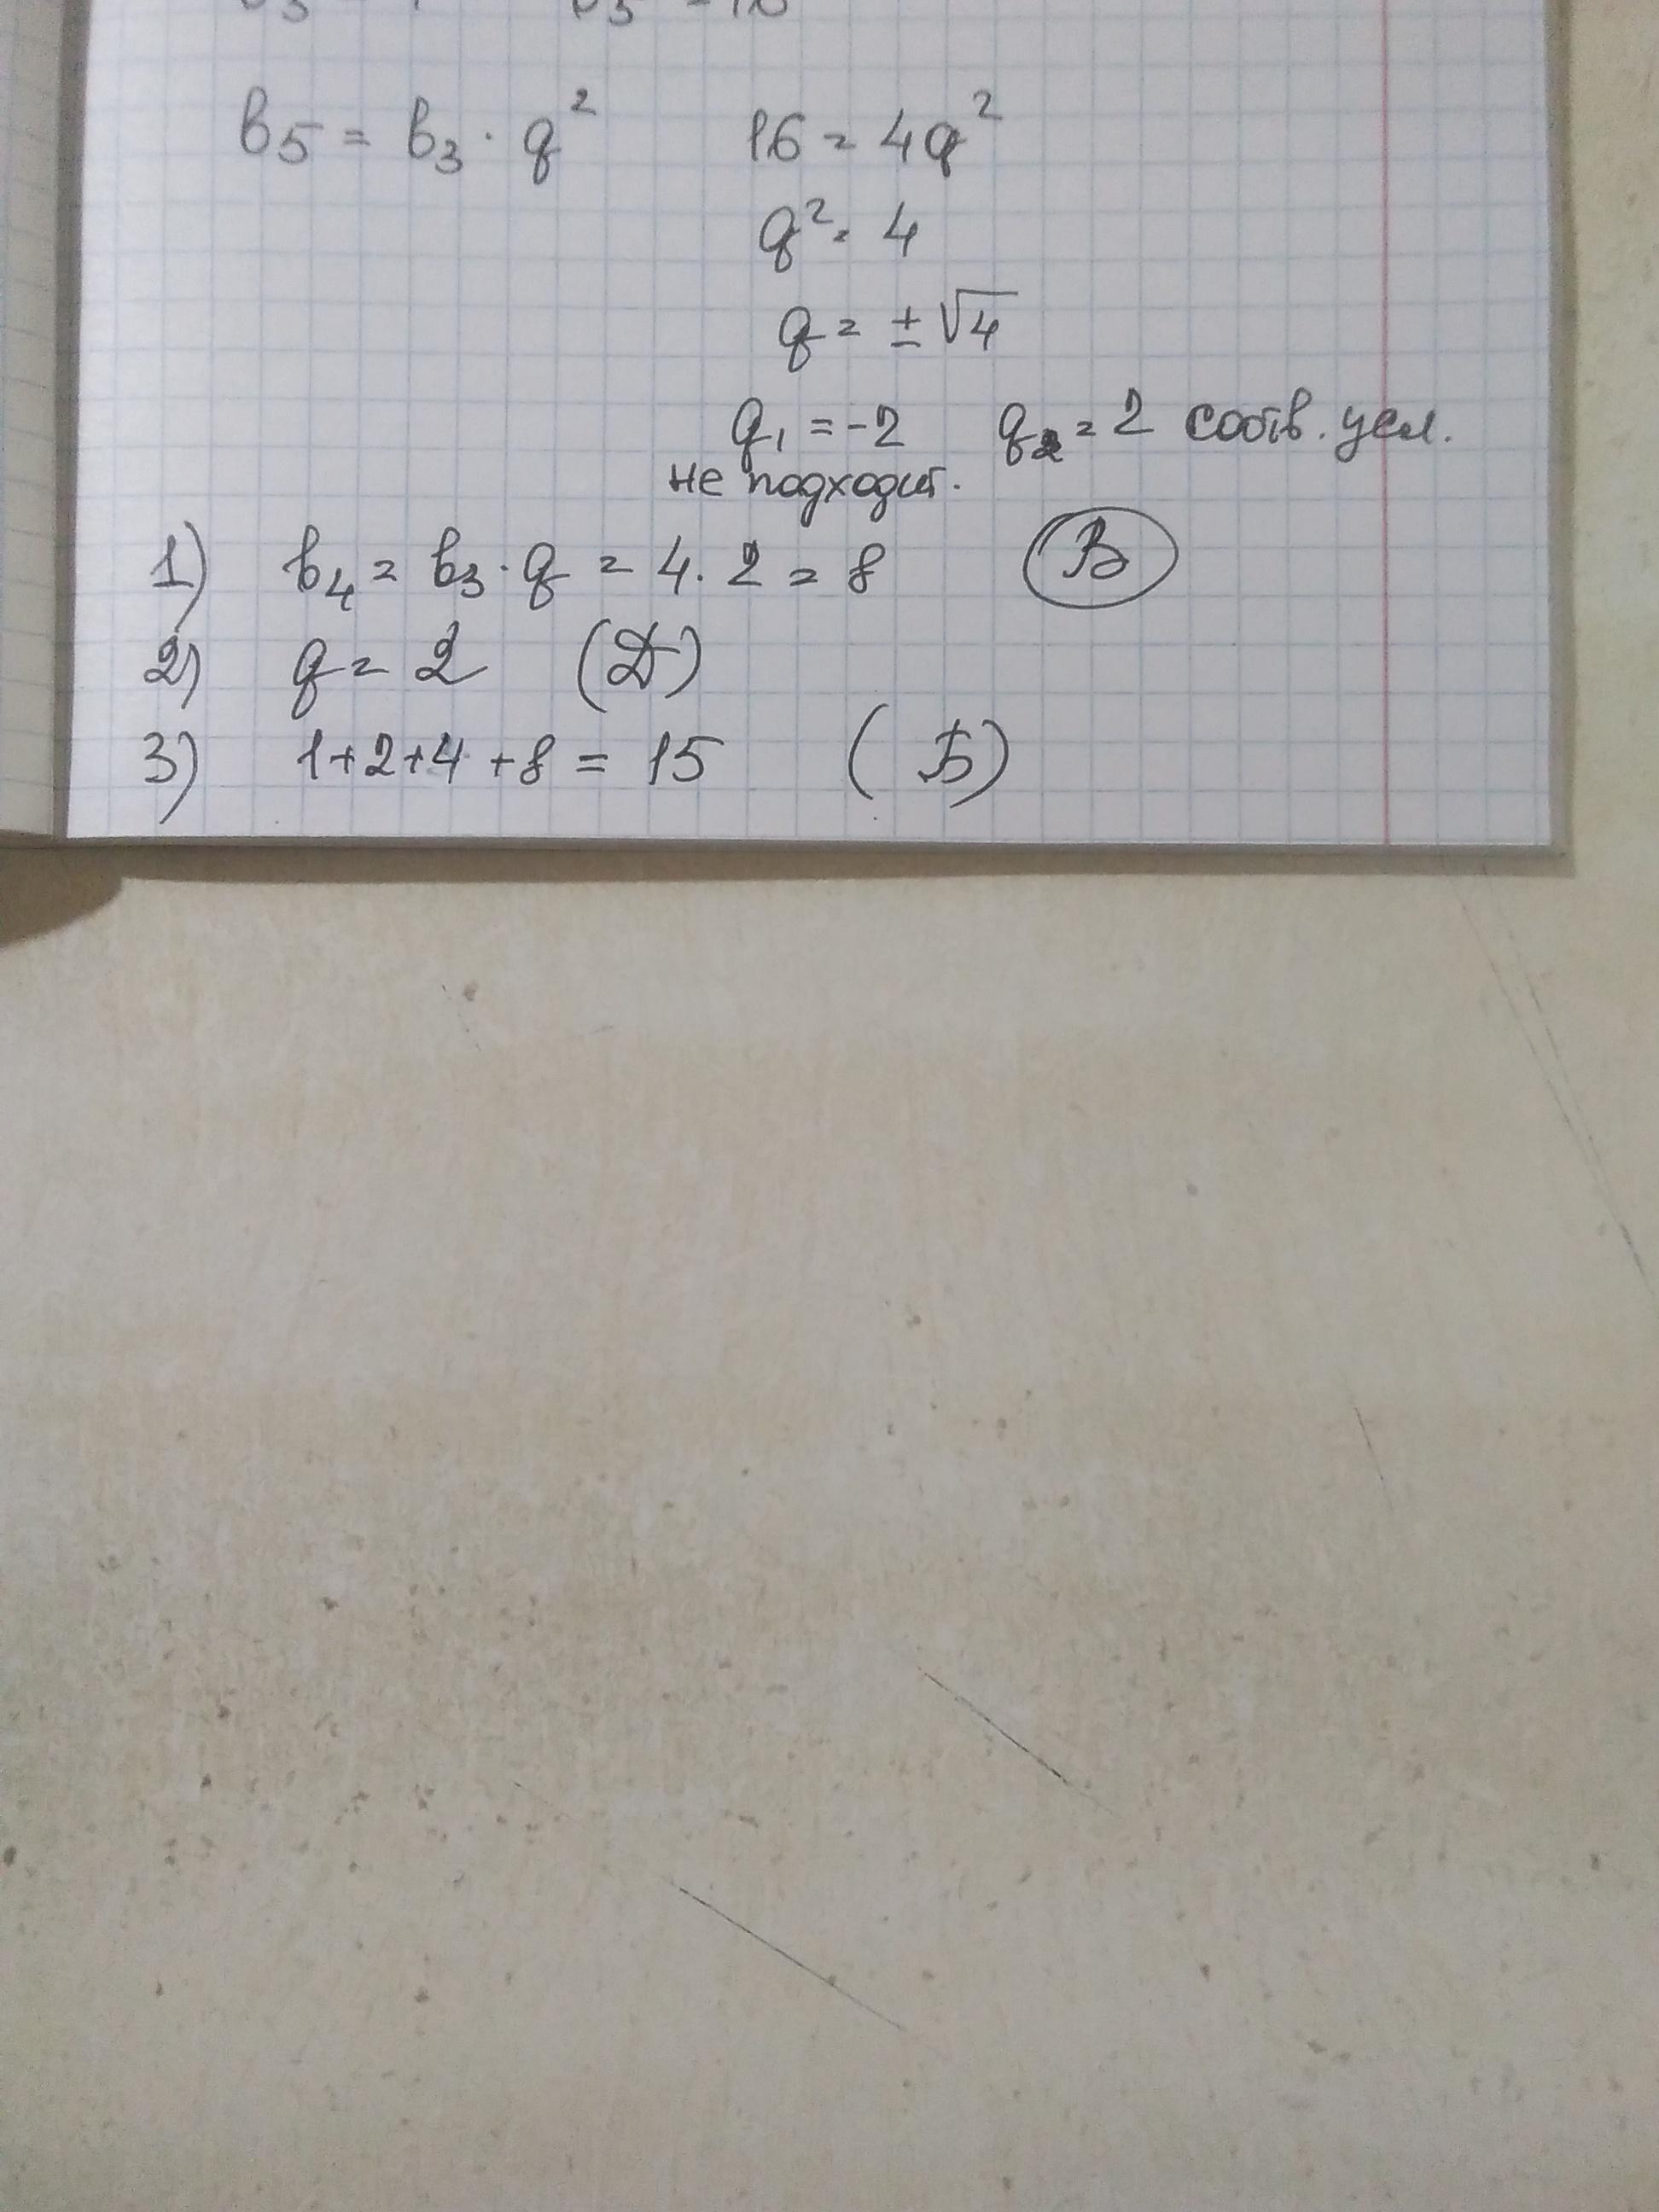 b₅ = b₃ · q² 16 = 4q²
q² = 4
q = ± √4
q₁ = -2 q₂ = 2 соотв. усл.
не подходит.
1) b₄ = b₃ · q = 4 · 2 = 8 В
2) q = 2 (Д)
3) 1+2+4+8 = 15 (Б)